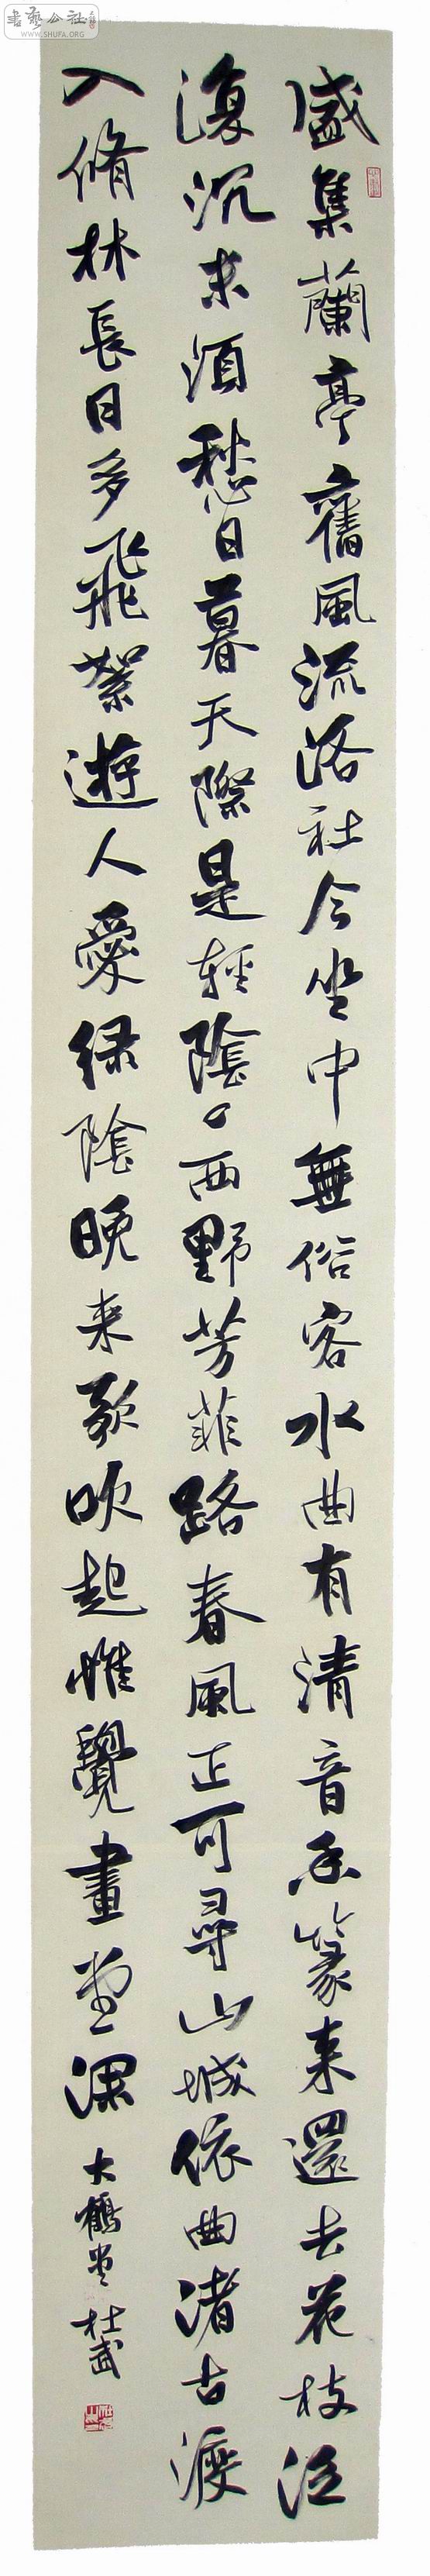 書藝公社
WWW.SHUFA.ORG
盛集蘭亭舊風流洛社今坐中無俗客水曲有清音香篆来還去花枝泛
復沉未須愁日暮天際是輕陰、西野芳菲路春風正可尋山城依曲渚古渡
入脩林長日多飛絮遊人愛綠陰晚来歌吹起惟覺畫堂深
大鶴堂杜武